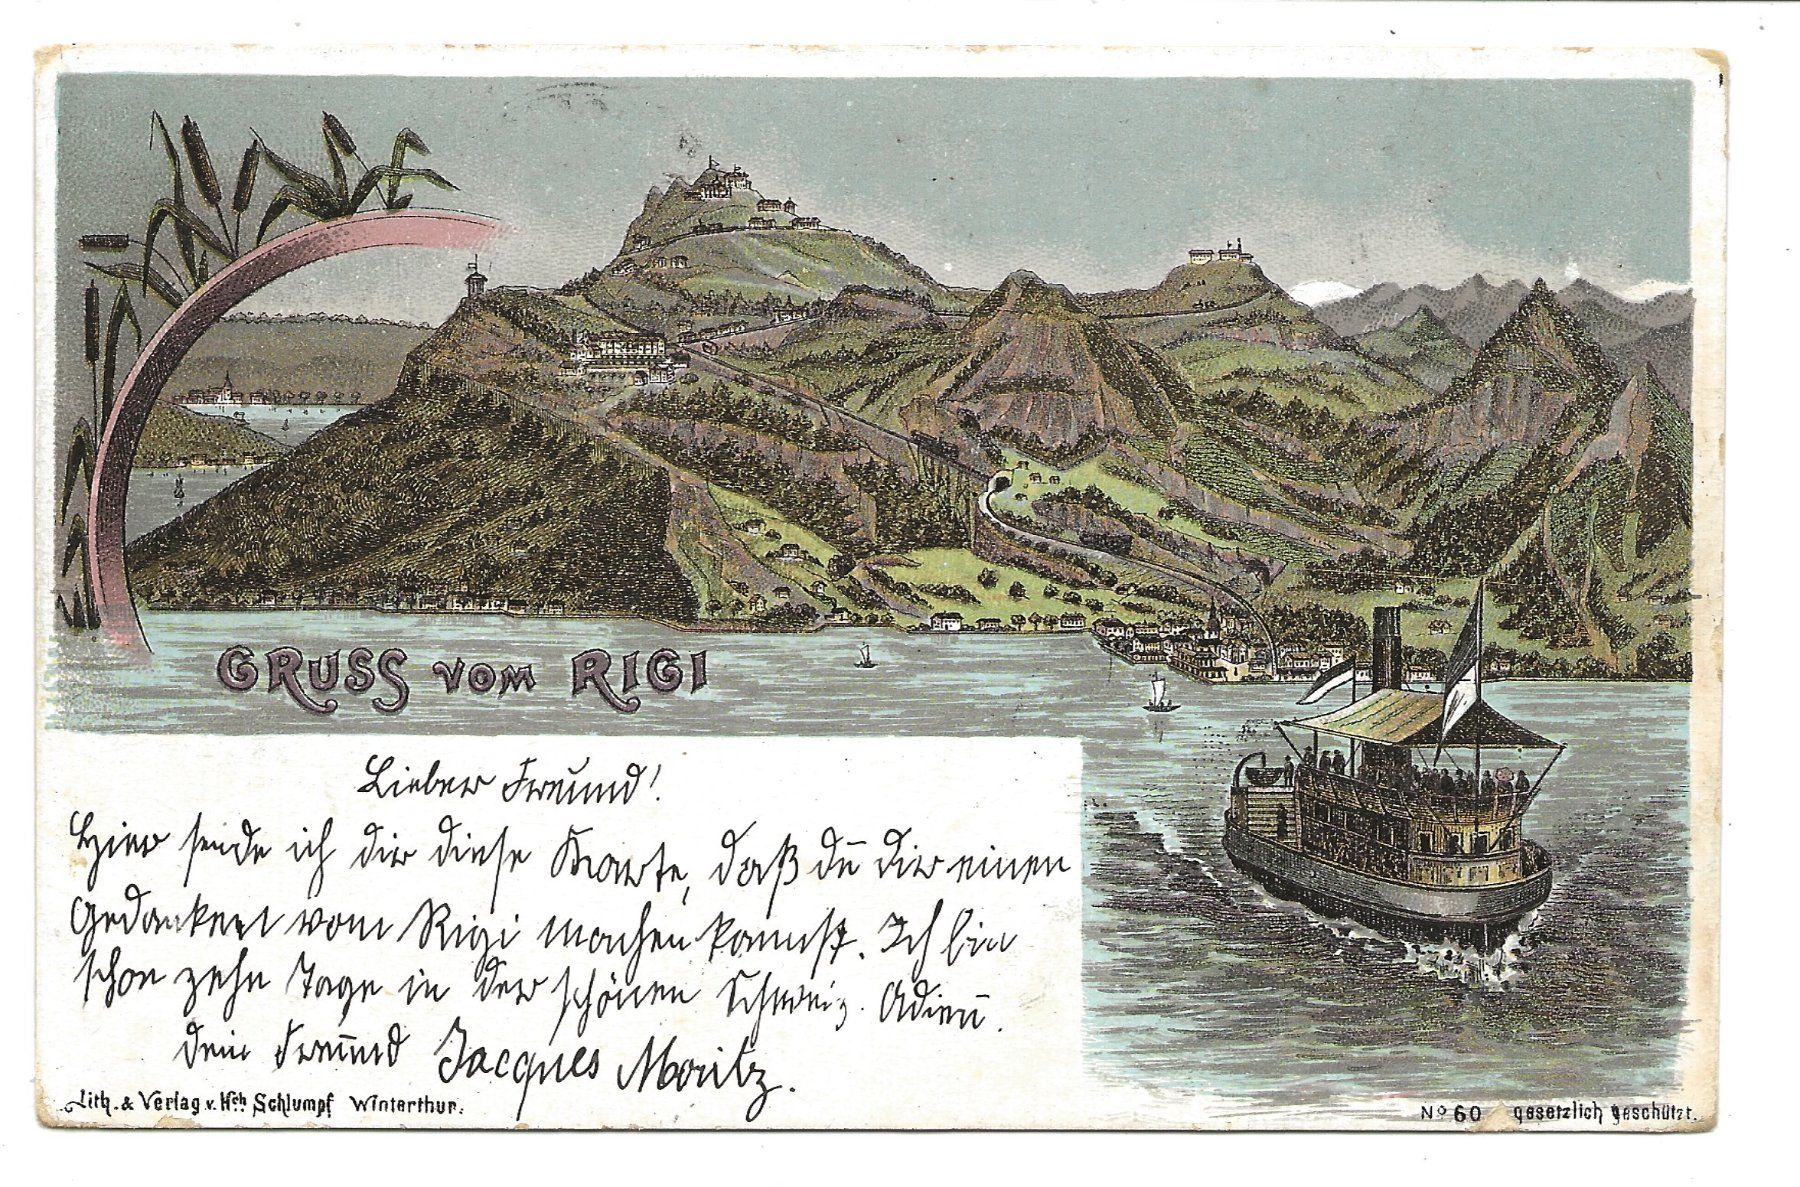 GRUSS VOM RIGI
Lieber Freund!
Hier sende ich dir diese Karte, daß du dir einen
Gedanken vom Rigi machen kannst. Ich bin
schon zehn Tage in der schönen Schweiz. Adieu.
dein Freund Jacques Moritz.
Lith. & Verlag v. Hch Schlumpf Winterthur.
No 60 gesetzlich geschützt.